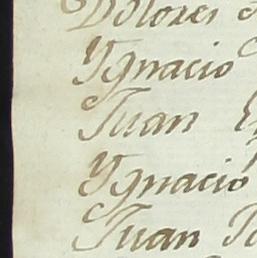 Dolores
Ygnacio
Juan
Ygnacio
Juan